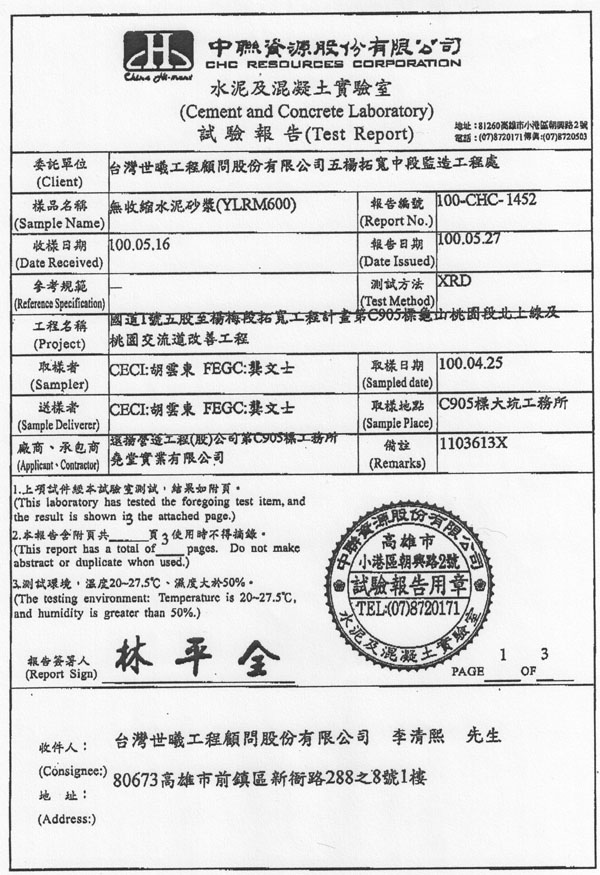 CHS
China Hi-ment
中聯資源股份有限公司
CHC RESOURCES CORPORATION
水泥及混凝土實驗室
(Cement and Concrete Laboratory)
試驗報告(Test Report)
地址:81260高雄市小港區朝興路2號
電話:(07)8720171傳真:(07)8720503
委託單位
(Client)
台灣世曦工程顧問股份有限公司五楊拓寬中段監造工程處
樣品名稱
(Sample Name)
無收縮水泥砂漿(YLRM600)
報告編號
(Report No.)
100-CHC-1452
收樣日期
(Date Received)
100.05.16
報告日期
(Date Issued)
100.05.27
參考規範
(Reference Specification)
—
測試方法
(Test Method)
XRD
工程名稱
(Project)
國道1號五股至楊梅段拓寬工程計畫第C905標龜山桃園段北上線及
桃園交流道改善工程
取樣者
(Sampler)
CECI:胡雲東 FEGC:龔文士
取樣日期
(Sampled date)
100.04.25
送樣者
(Sample Deliverer)
CECI:胡雲東 FEGC:龔文士
取樣地點
(Sample Place)
C905標大坑工務所
廠商、承包商
(Applicant、Contractor)
遠揚營造工程(股)公司第C905標工務所
堯堂實業有限公司
備註
(Remarks)
1103613X
1.上項試件經本試驗室測試,結果如附頁。
(This laboratory has tested the foregoing test item, and
the result is shown in the attached page.)
2.本報告含附頁共 3 頁使用時不得摘錄。
(This report has a total of 3 pages. Do not make
abstract or duplicate when used.)
3.測試環境,溫度20~27.5℃、濕度大於50%。
(The testing environment: Temperature is 20~27.5℃,
and humidity is greater than 50%.)
中聯資源股份有限公司
高雄市
小港區朝興路2號
試驗報告用章
TEL:(07)8720171
水泥及混凝土實驗室
報告簽署人
(Report Sign)
林平全
PAGE 1 OF 3
收件人:
(Consignee:)
台灣世曦工程顧問股份有限公司 李清熙 先生
地址:
(Address:)
80673高雄市前鎮區新衙路288之8號1樓